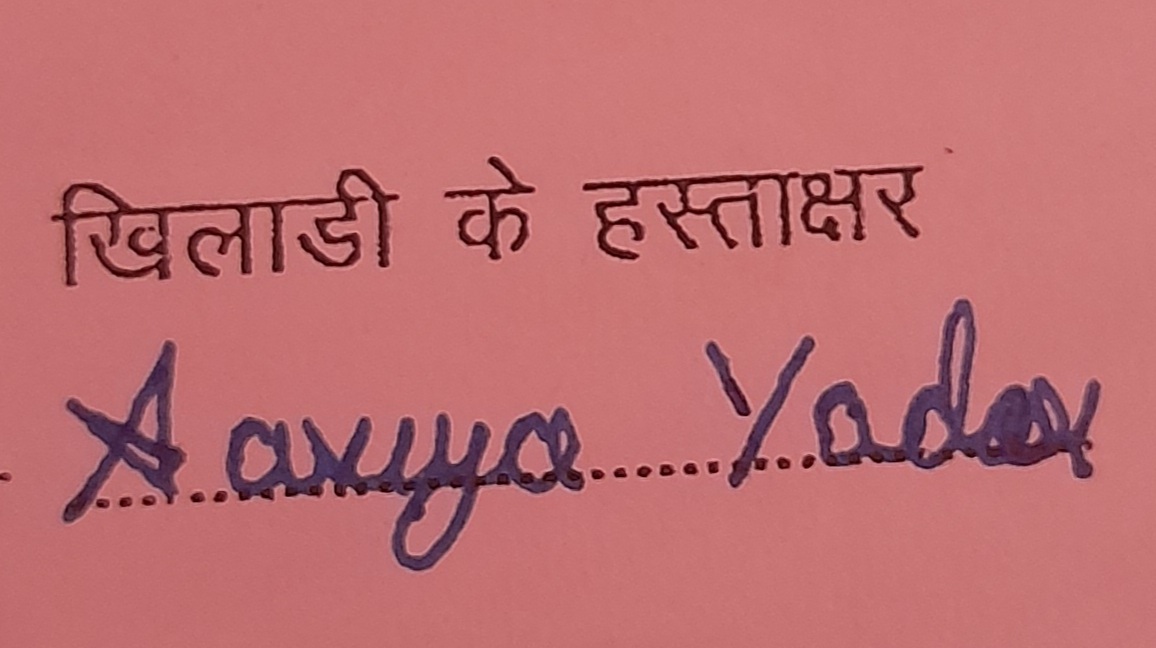 खिलाडी के हस्ताक्षर
Aarya Yadav